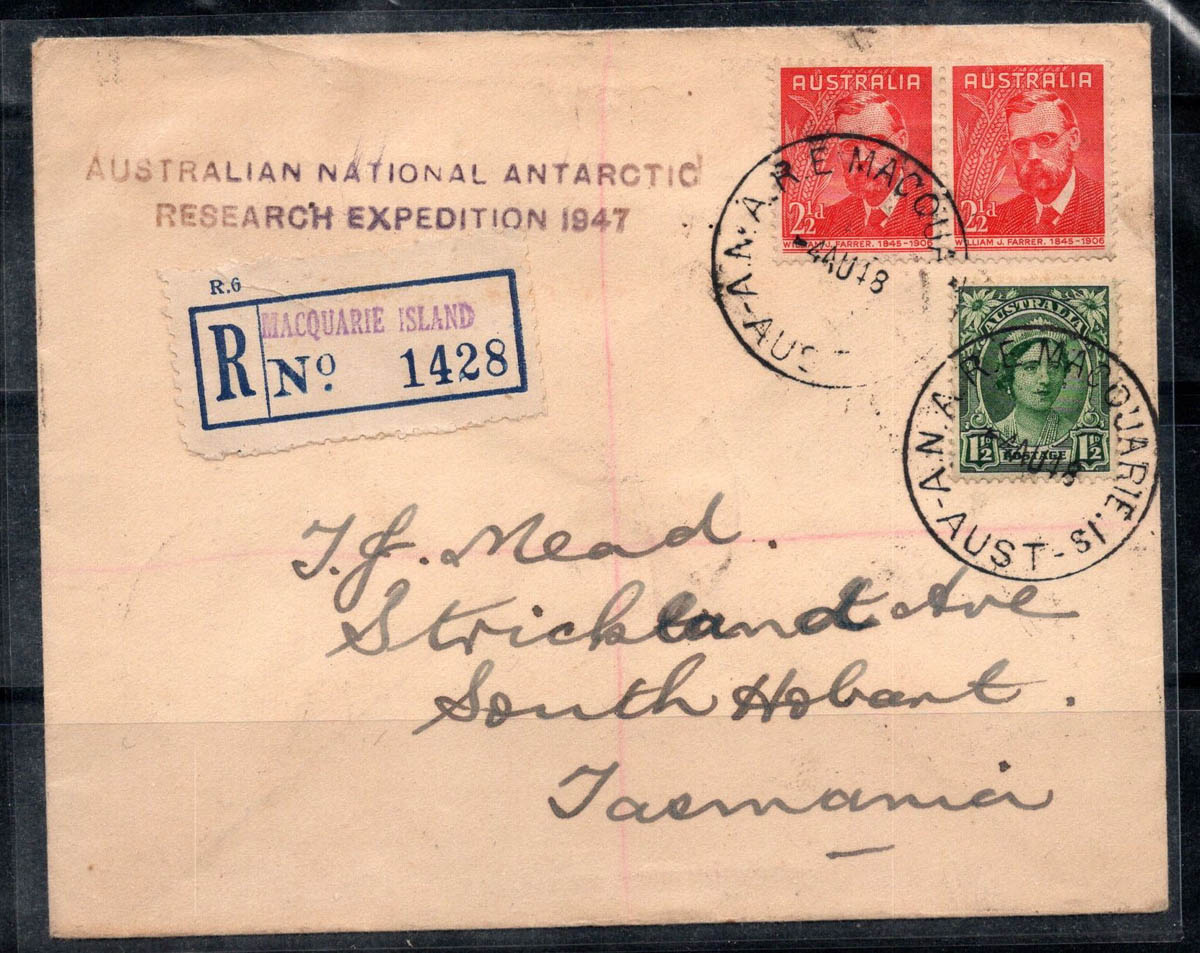 AUSTRALIAN NATIONAL ANTARCTIC
RESEARCH EXPEDITION 1947
R.6
R
MACQUARIE ISLAND
No. 1428
AUSTRALIA
2½d
WILLIAM J. FARRER. 1845-1906
AUSTRALIA
2½d
WILLIAM J. FARRER. 1845-1906
A.N.A.R.E MACQUA
-4AU48
-AUS
AUSTRALIA
1½D
1½D
POSTAGE
A.N.A.R.E MACQUARIE.IS-
-4AU48
-AUST-
T.J. Mead.
Strickland Ave
South Hobart.
Tasmania